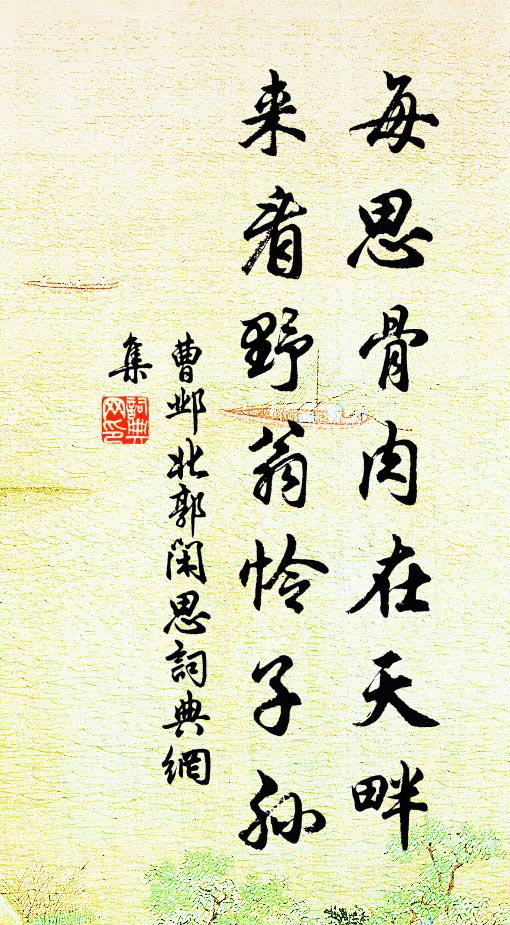 每思骨肉在天畔
来看野翁怜子孙
曹邺北郭闲思詞典網
集
詞典
网印